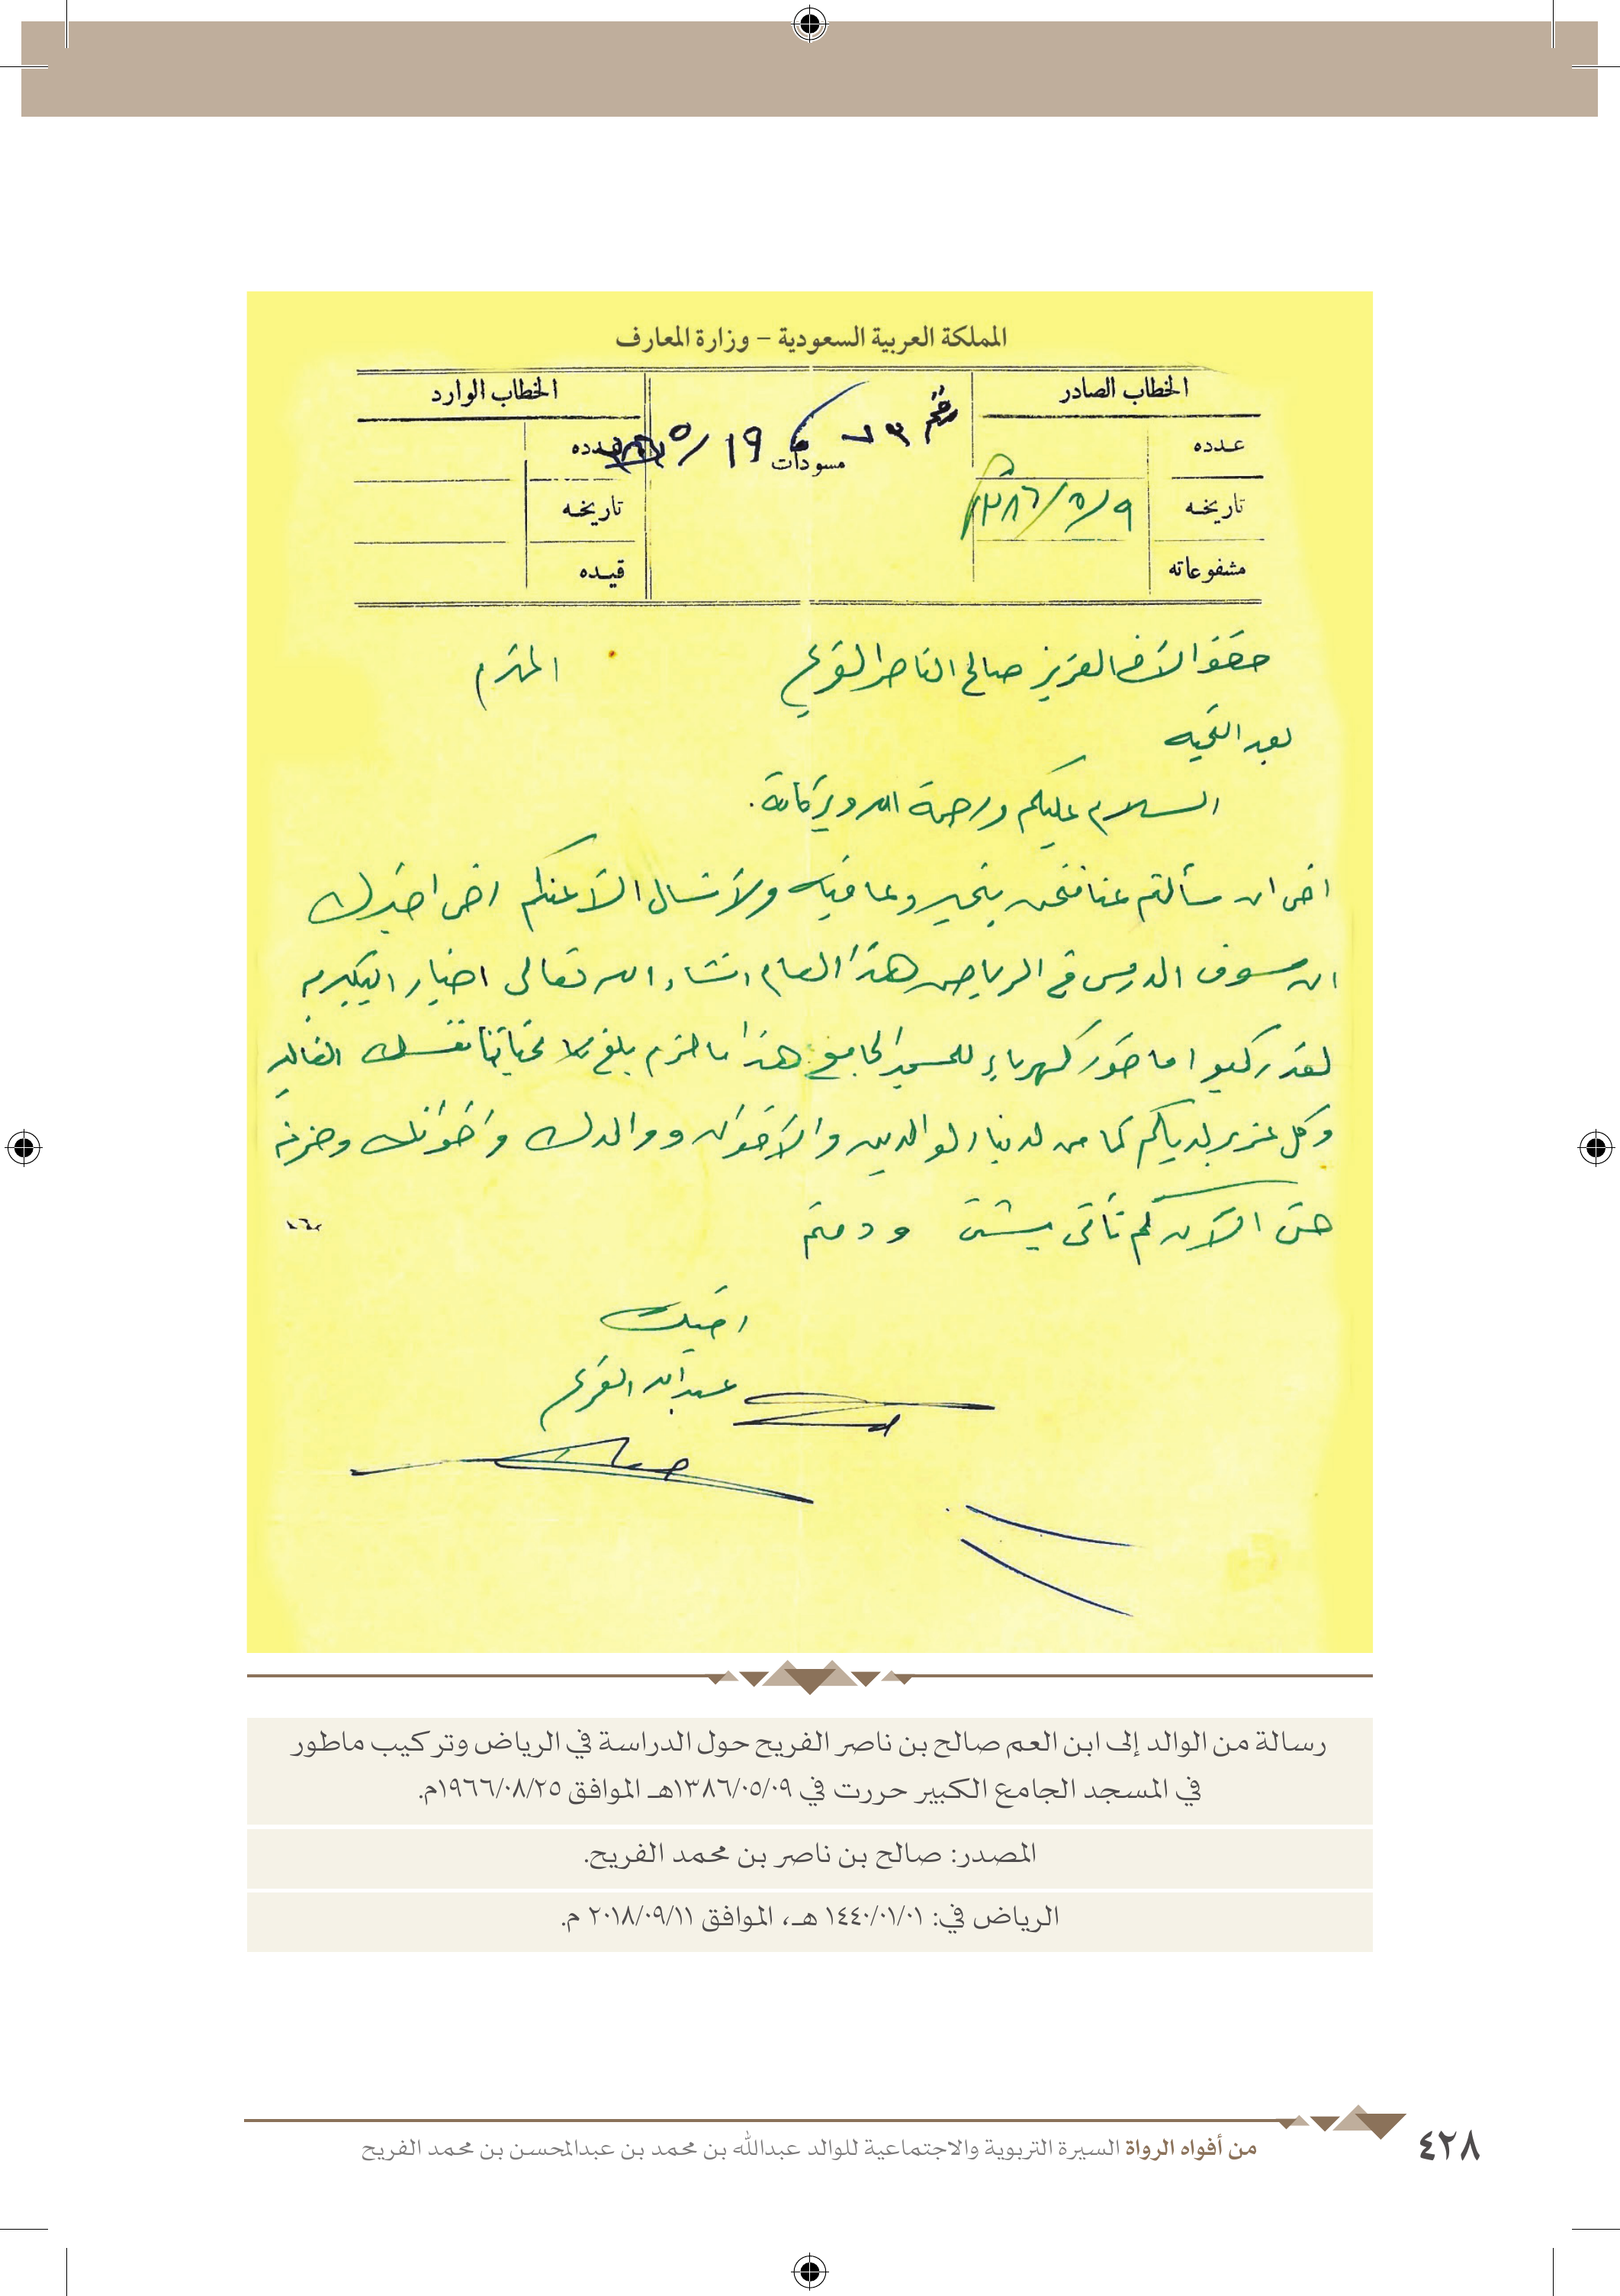 المملكة العربية السعودية – وزارة المعارف
الخطاب الصادر
عدده
تاريخه ١٣٨٦/٥/٩
مشفوعاته
رقم ٧٣
مسودات
١٩/٥
الخطاب الوارد
عدده
تاريخه
قيده
حضرة الأخ العزيز صالح الناصر الفريح المحترم
بعد التحيه
السلام عليكم ورحمة الله وبركاته.
اخي ان سألتم عنا فنحن بخير وعافيه ولانسال الا عنكم اخي اخبرك
ان سوف الدرس في الرياض هذا العام انشاء الله تعالى اخبار البكيريه
لقد ركبو ا ماطور كهرباء للمسجد الجامع هذا مالزم بلغ تحياتنا نفسك الغاليه
وكل عزيز لديكم كما من لدينا الوالدين والاخوان ووالدك واخوانك
حتى الآن لم تأتي ودمتم
اخيك
عبدالله الفريح
رسالة من الوالد إلى ابن العم صالح بن ناصر الفريح حول الدراسة في الرياض وتركيب ماطور
في المسجد الجامع الكبير حررت في ١٣٨٦/٠٥/٠٩هـ الموافق ١٩٦٦/٠٨/٢٥م.
المصدر: صالح بن ناصر بن محمد الفريح.
الرياض في: ١٤٤٠/٠١/٠١ هـ، الموافق ٢٠١٨/٠٩/١١ م.
من أفواه الرواة السيرة التربوية والاجتماعية للوالد عبدالله بن محمد بن عبدالمحسن بن محمد الفريح
٤٢٨